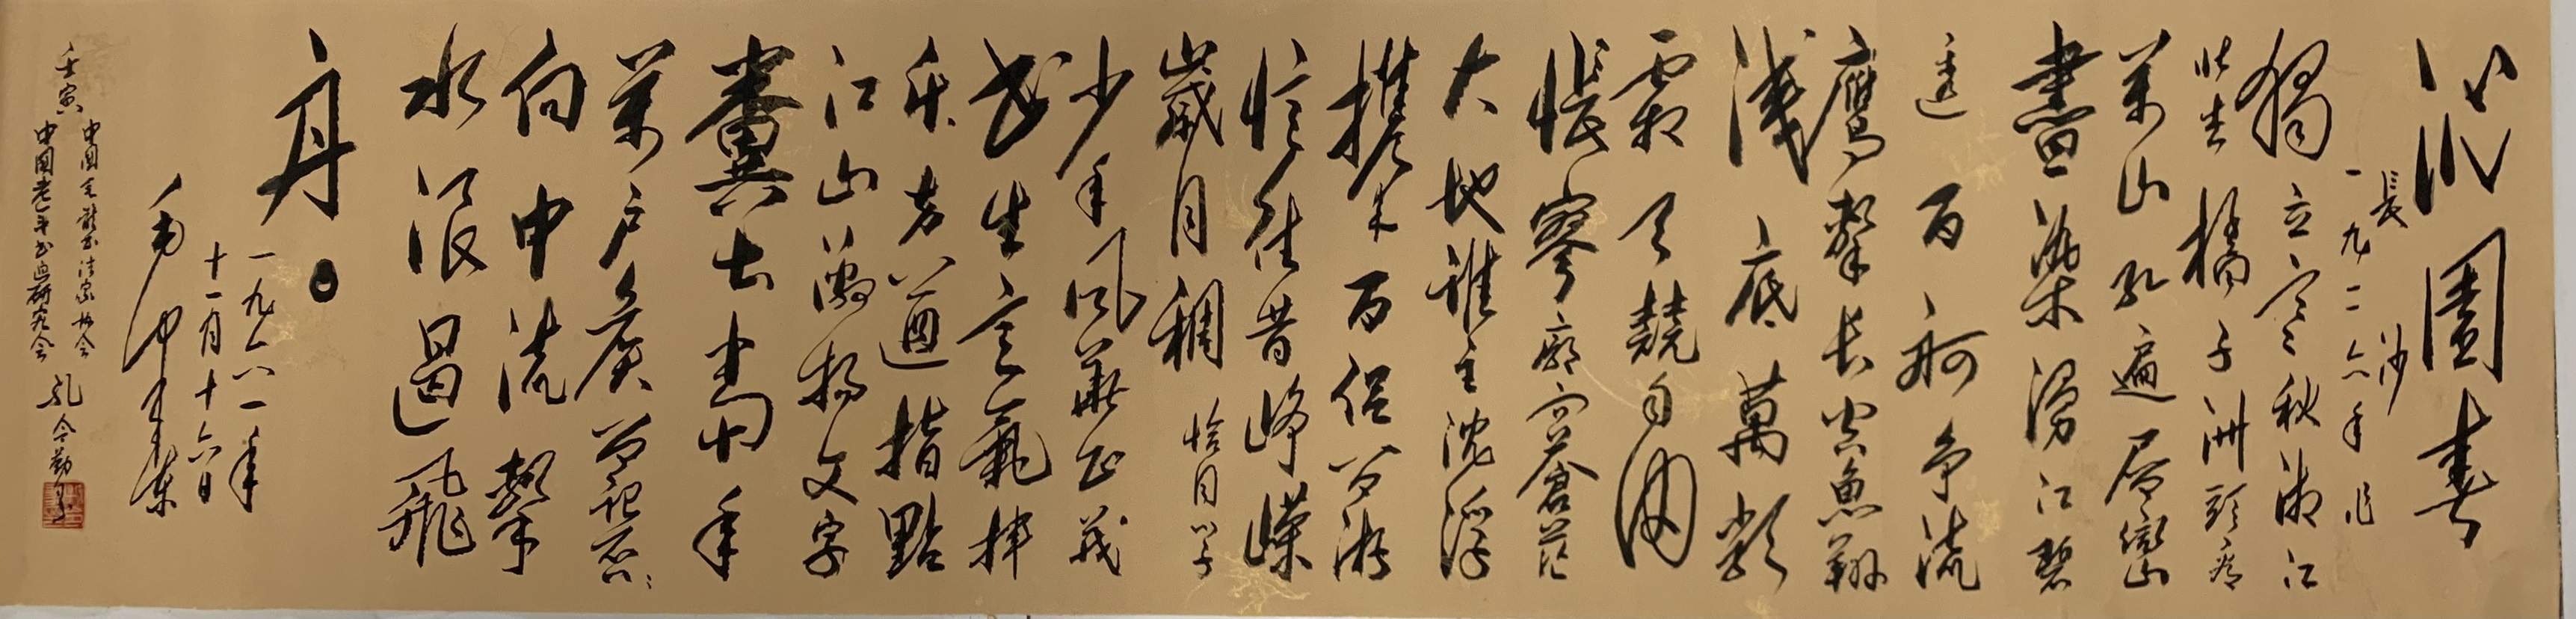 沁園春
長沙
一九二六年作
獨立寒秋湘江
北去橘子洲頭看
萬山红遍層巒
盡染漫江碧
透百舸争流
鷹擊長空魚翔
淺底萬類
霜天競自由
悵寥廓問蒼茫
大地誰主沈浮
攜来百侣曾游
憶往昔崢嶸
歲月稠恰同学
少年風華正茂
書生意氣揮
斥方遒指點
江山激揚文字
糞土當年
萬户侯曾記否
向中流擊
水浪遏飛
舟。
一九六一年
十一月十六日
毛澤東
壬寅
中国毛體书法家协会
中国老年书画研究会 孔令勤书